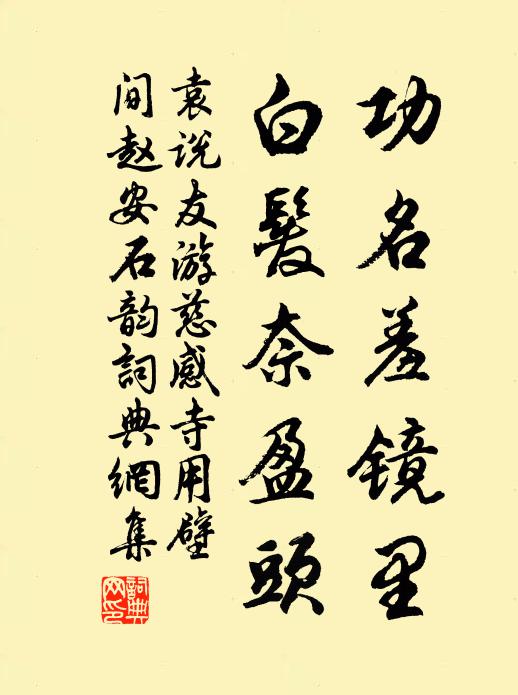 功名羞镜里
白髮奈盈頭
袁说友游慈感寺用壁
间赵安石韵詞典網集
詞典網印